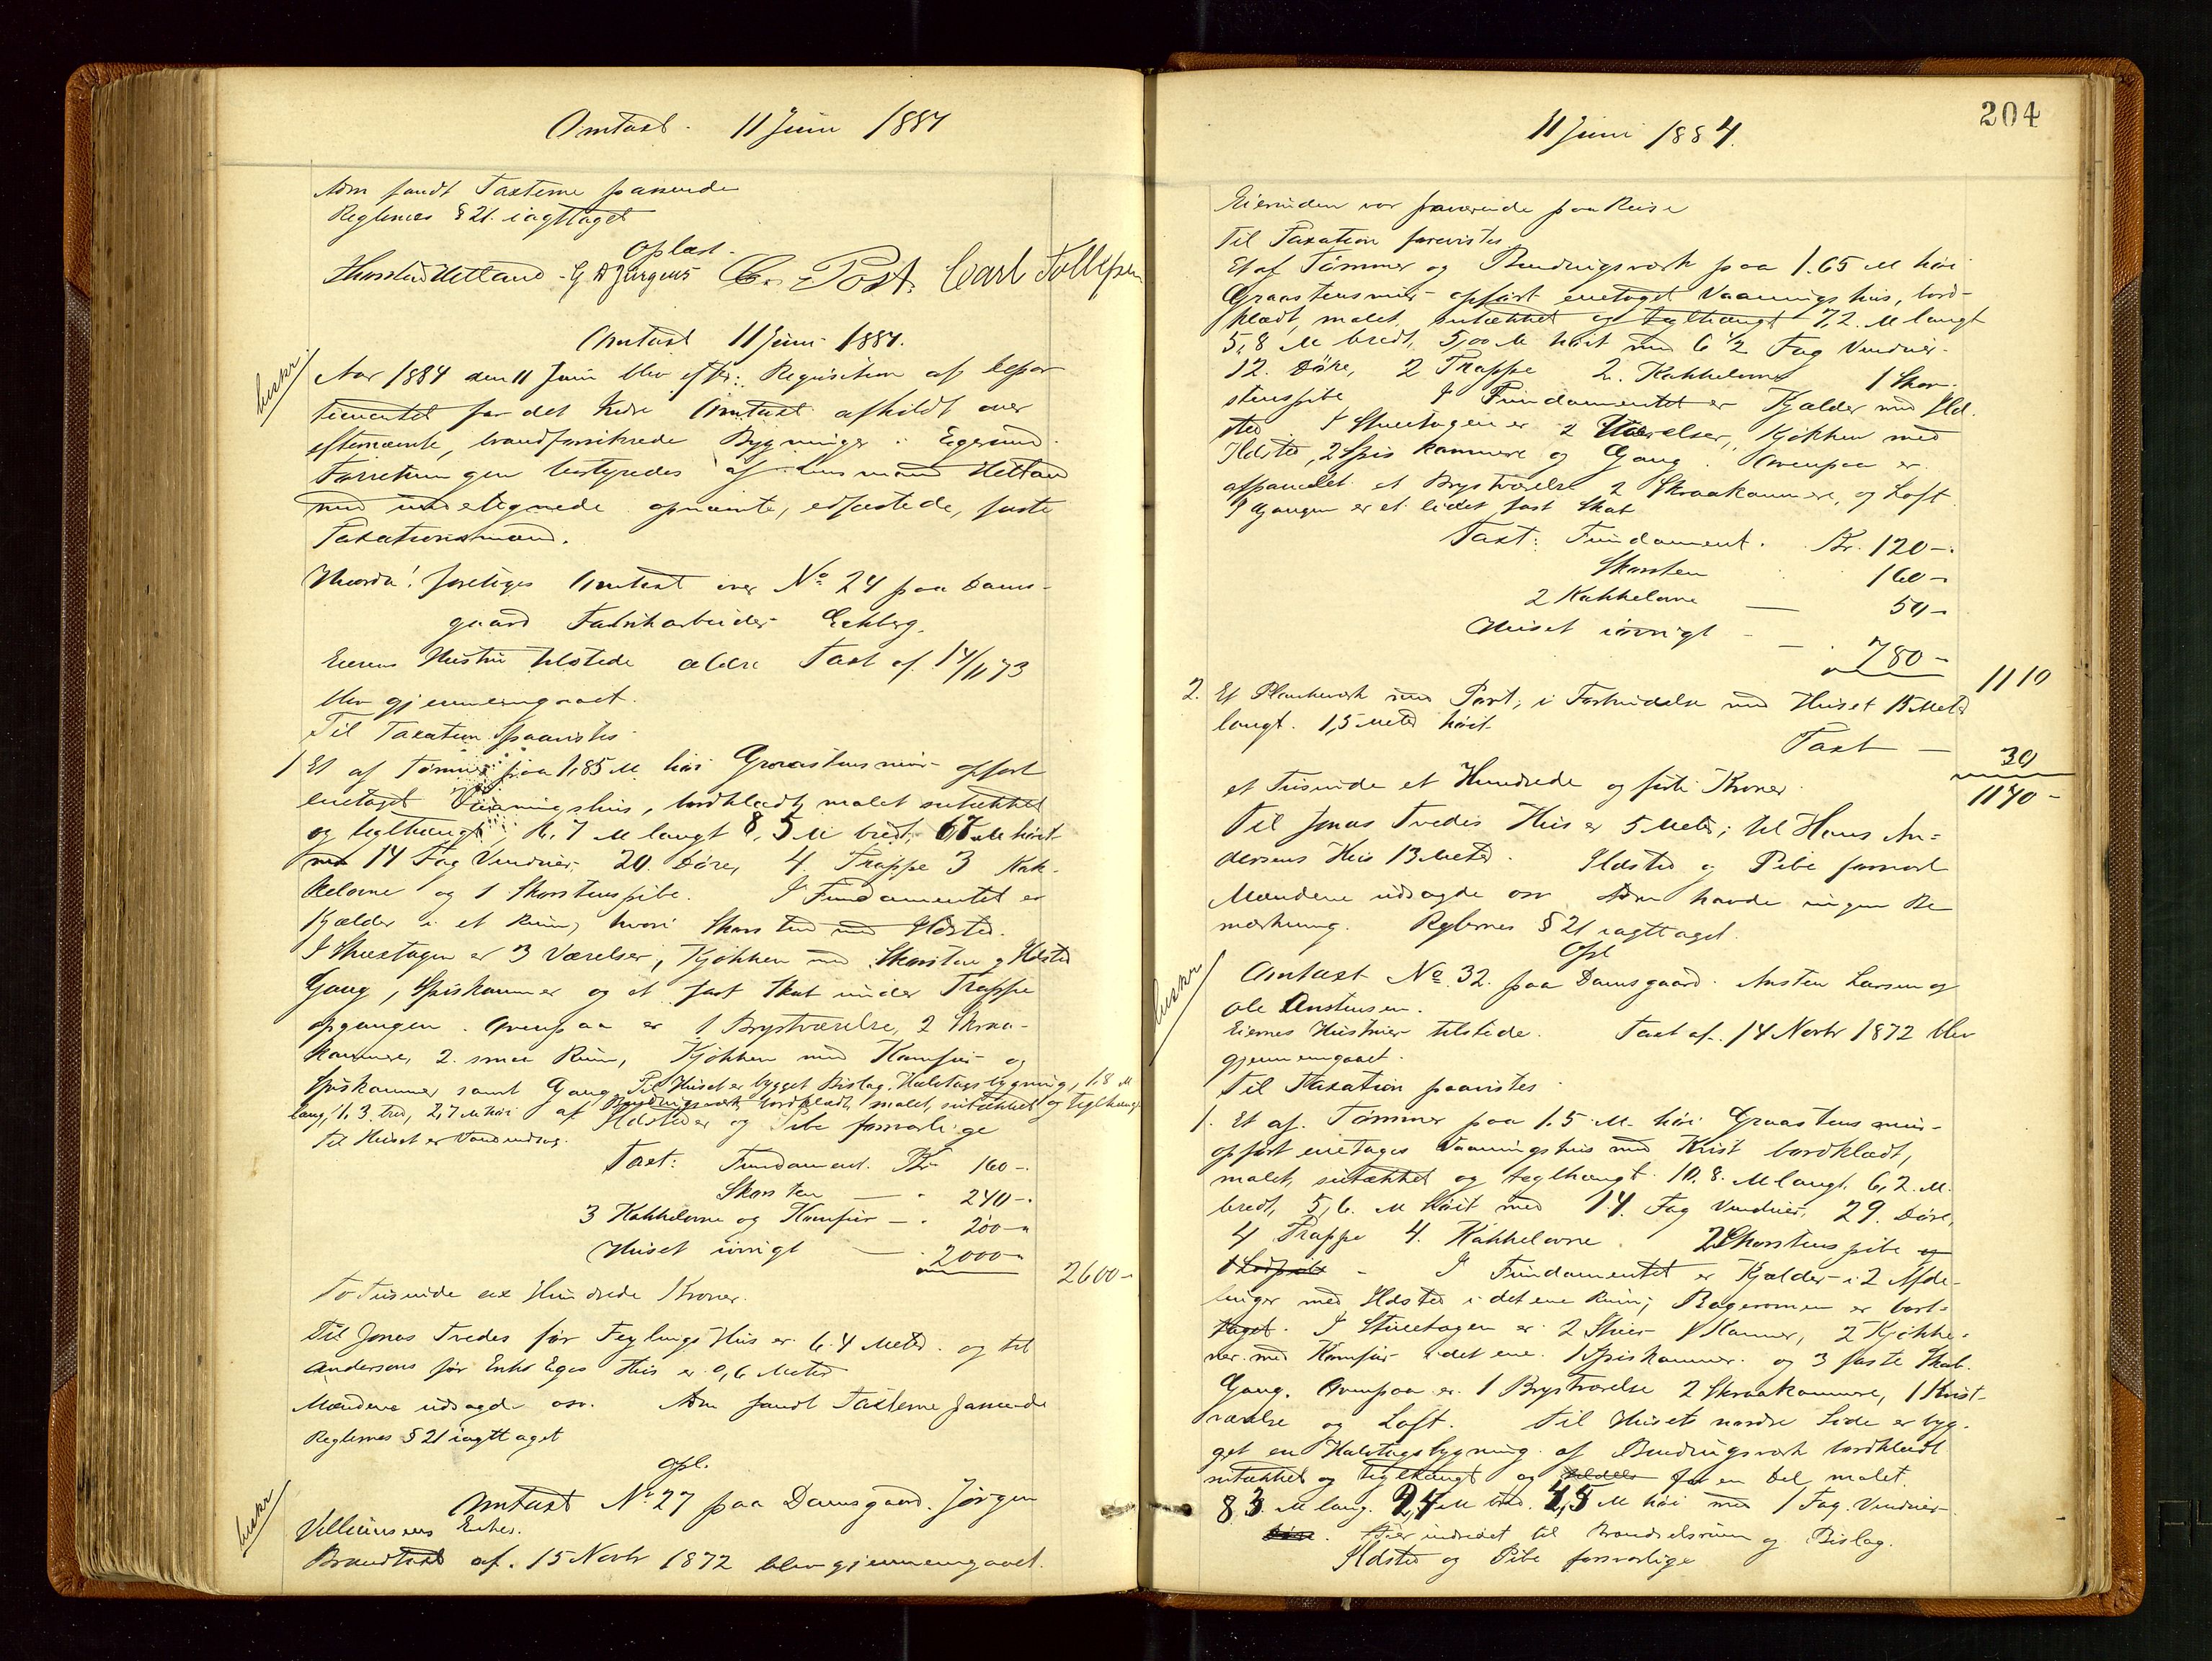 Omtaxt. 11 Juni 1884
Adm fandt Taxterne passende
Reglernes § 21. iagttaget
Oplæst.
Thorstein Hetland - G A Jürgens C. Post. Carl Tollefsen
Omtaxt 11 Juni 1884.
Aar 1884 den 11 Juni blev efter Requisition af Depar
tementet for det Indre Omtaxt afholdt over
efternævnte, brandforsikrede Bygninger i Egersund.
Forretningen bestyredes af Lensmand Hetland
med undertegnede opnævnte, edfæstede, faste
Taxationsmænd.
Hvorda! foretoges Omtaxt over No 24 paa Dams-
gaard Fabrikarbeider Eckberg.
Eierens Hustru tilstede ældre Taxt af 14/11 73
blev gjennemgaaet.
Til Taxation paavistes
1 Et af Tømmer paa 1,85 M. høi Graastensmur opført
enetaget Vaaningshus, bordklædt, malet sutækket
og teglhængt, 7 M langt 8,5 M bredt, 6,7 M høit
med 14 Fag Vinduer, 20 Døre, 4 Trappe 3 Kak-
kelovne og 1 Skorstenspibe. I Fundamentet er
Kjælder i et Rum, hvori Skorsten med Ildsted.
I Stueetagen er 3 Værelser, Kjøkken med Skorsten og Ildsted
Gang, Spiskammer og et fast Skab under Trappe
opgangen. Ovenpaa er 1 Brystværelse, 2 Skraa-
kammere, 2 smaa Rum, Kjøkken med Komfur og
Spiskammer samt Gang. Til Huset er bygget Bislag. Halvtagsbygning, 1,8 M
lang, 1,3 bred, 2,7 M høi af Bindingsværk bordklædt, malet, sutækket og teglhængt
Til Huset er Vandindlag. Ildsteder og Pibe forsvarlige
Taxt: Fundament. Kr 160 -.
Skorsten — " 240 -.
3 Kakkelovne og Komfur — " 200 -
Huset iøvrigt — " 2000 -
2600 -
To Tusinde sex Hundrede Kroner.
Til Jonas Tvedes før Feylings Hus er 6.4 Meter. og til
Andersens før Enke Eges Hus er 0,6 Meter
Mændene udsagde osv. Adm fandt Taxterne passende
Reglernes § 21 iagttaget
Opl.
Omtaxt No 27 paa Damsgaard. Jørgen
Villumsens Enke.
Brandtaxt af. 15 Novbr 1872 blev gjennemgaaet.
huskr
huskr
204
11 Juni 1884.
Eierinden var fraværende paa Reise
Til Taxation forevistes
Et af Tømmer og Bindingsværk paa 1.65 M høi
Graastensmur opført enetaget Vaaningshus, bord-
klædt, malet, sutækket og teglhængt 7,2. M langt
5,8 M bredt, 5,00 M høit med 6 1/2 Fag Vinduer.
12. Døre, 2 Trappe 2. Kakkelovne 1 Skor-
stenspibe I Fundamentet er Kjælder med Ild-
sted. I Stueetagen er 2 Værelser, Kjøkken med
Ildsted, 2 Spiskammere og Gang. Ovenpaa er
afpanelet et Brystværelse 2 Skraakammere, og Loft
I Gangen er et lidet fast Skab
Taxt: Fundament. Kr. 120 -.
Skorsten 160 -
2 Kakkelovne — 50 -
Huset iøvrigt — 780 -
1110
2. Et Plankeværk med Port, i Forbindelse med Huset 15 Meter
langt. 1,5 Meter høit.
Taxt — 30
1140 -
et Tusinde et Hundrede og førti Kroner.
Til Jonas Tvedes Hus er 5 Meter; til Hans An-
dersens Hus 13 Meter. Ildsted og Pibe forsvarl
Mændene udsagde osv Adm havde ingen Be
mærkning. Reglernes § 21 iagttaget.
Opl
huskr
Omtaxt No 32. paa Damsgaard. Austen Larsen og
Ole Austensen.
Eiernes Hustruer tilstede. Taxt af. 14 Novbr 1872 blev
gjennemgaaet.
Til Taxation paavistes
1. Et af. Tømmer paa 1.5 M. høi Graastens mur-
opført enetages Vaaningshus med Kvist bordklædt,
malet, sutækket og teglhængt 10,8. M langt 6,2. M.
bredt, 5,6. M høit med 14. Fag Vinduer, 29. Døre,
4 Trappe 4. Kakkelovne. 2 Skorstenspibe og
I Fundamentet er Kjælder i 2 Afde-
linger med Ildsted i det ene Rum; Bagerovnen er bort-
taget. I Stueetagen er 2 Stuer 1 Kammer, 2 Kjøkke-
ner med Komfur i det ene. 1 Spiskammer. og 3 faste Skab.
Gang. Ovenpaa er 1 Brystværelse 2 Skraakammere, 1 Kvist-
værelse og Loft. Til Husets nordre Side er byg-
get en Halvtagsbygning af Bindingsværk bordklædt
sutækket og teglhængt og for en Del malet
8,3. M lang. 2,4 M bred. 4,5 M høi med 1 Fag. Vinduer
Her indredet til Brændselsrum og Bislag.
Ildsted og Pibe forsvarlige